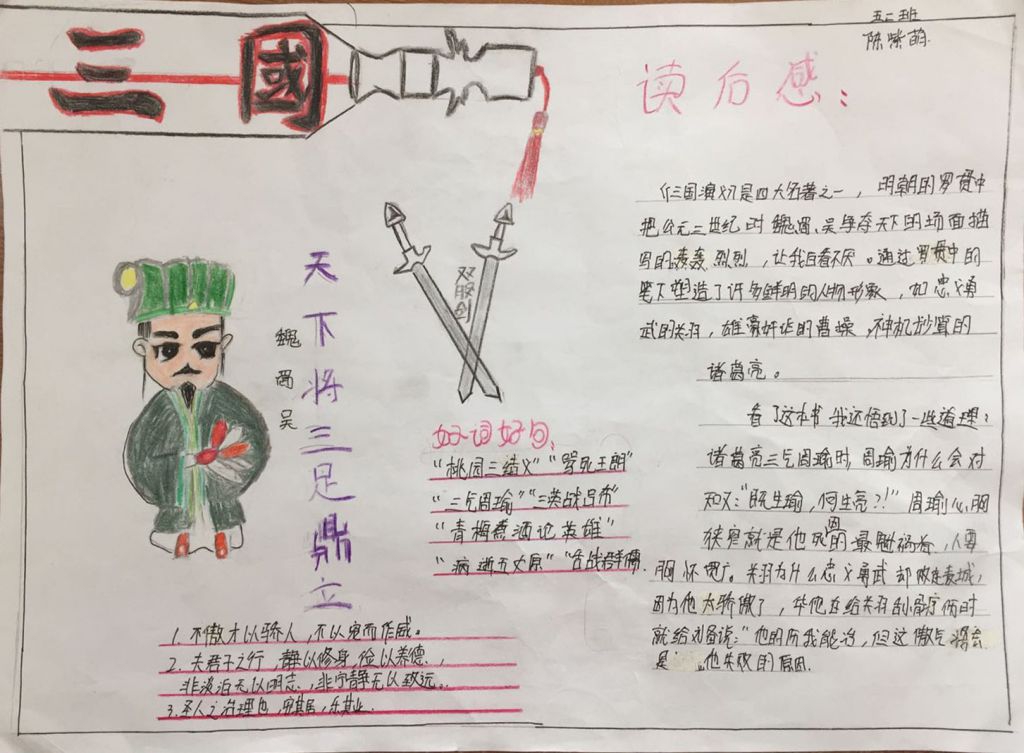 三國
五二班
陈紫萌
读后感:
《三国演义》是四大名著之一,明朝的罗贯中
把公元三世纪时魏蜀、吴争夺天下的场面描
写的轰轰烈烈,让我百看不厌。通过罗贯中的
笔下塑造了许多鲜明的人物形象,如忠义勇
武的关羽,雄豪奸诈的曹操,神机妙算的
诸葛亮。
看了这本书我还悟到了一些道理:
诸葛亮三气周瑜时,周瑜为什么会对
知又:“既生瑜,何生亮?!”周瑜心胸
狭窄就是他死的因最,人要
胸怀宽广。关羽为什么忠义勇武却败走麦城,
因为他太骄傲了,华佗在给关羽刮骨疗伤时
就给刘备说:“他的伤我能治,但这傲气将会
是他失败的原因.
双股剑
天下将三足鼎立
魏蜀吴
好词好句:
“桃园三结义”“骂死王朗”
“三气周瑜”“三英战吕布”
“青梅煮酒论英雄”
“病逝五丈原”“舌战群儒”
1. 不傲才以骄人,不以宠而作威。
2. 夫君子之行,静以修身,俭以养德.,
非淡泊无以明志.,非宁静无以致远.。
3. 圣人之治理也,安其居,乐其业.